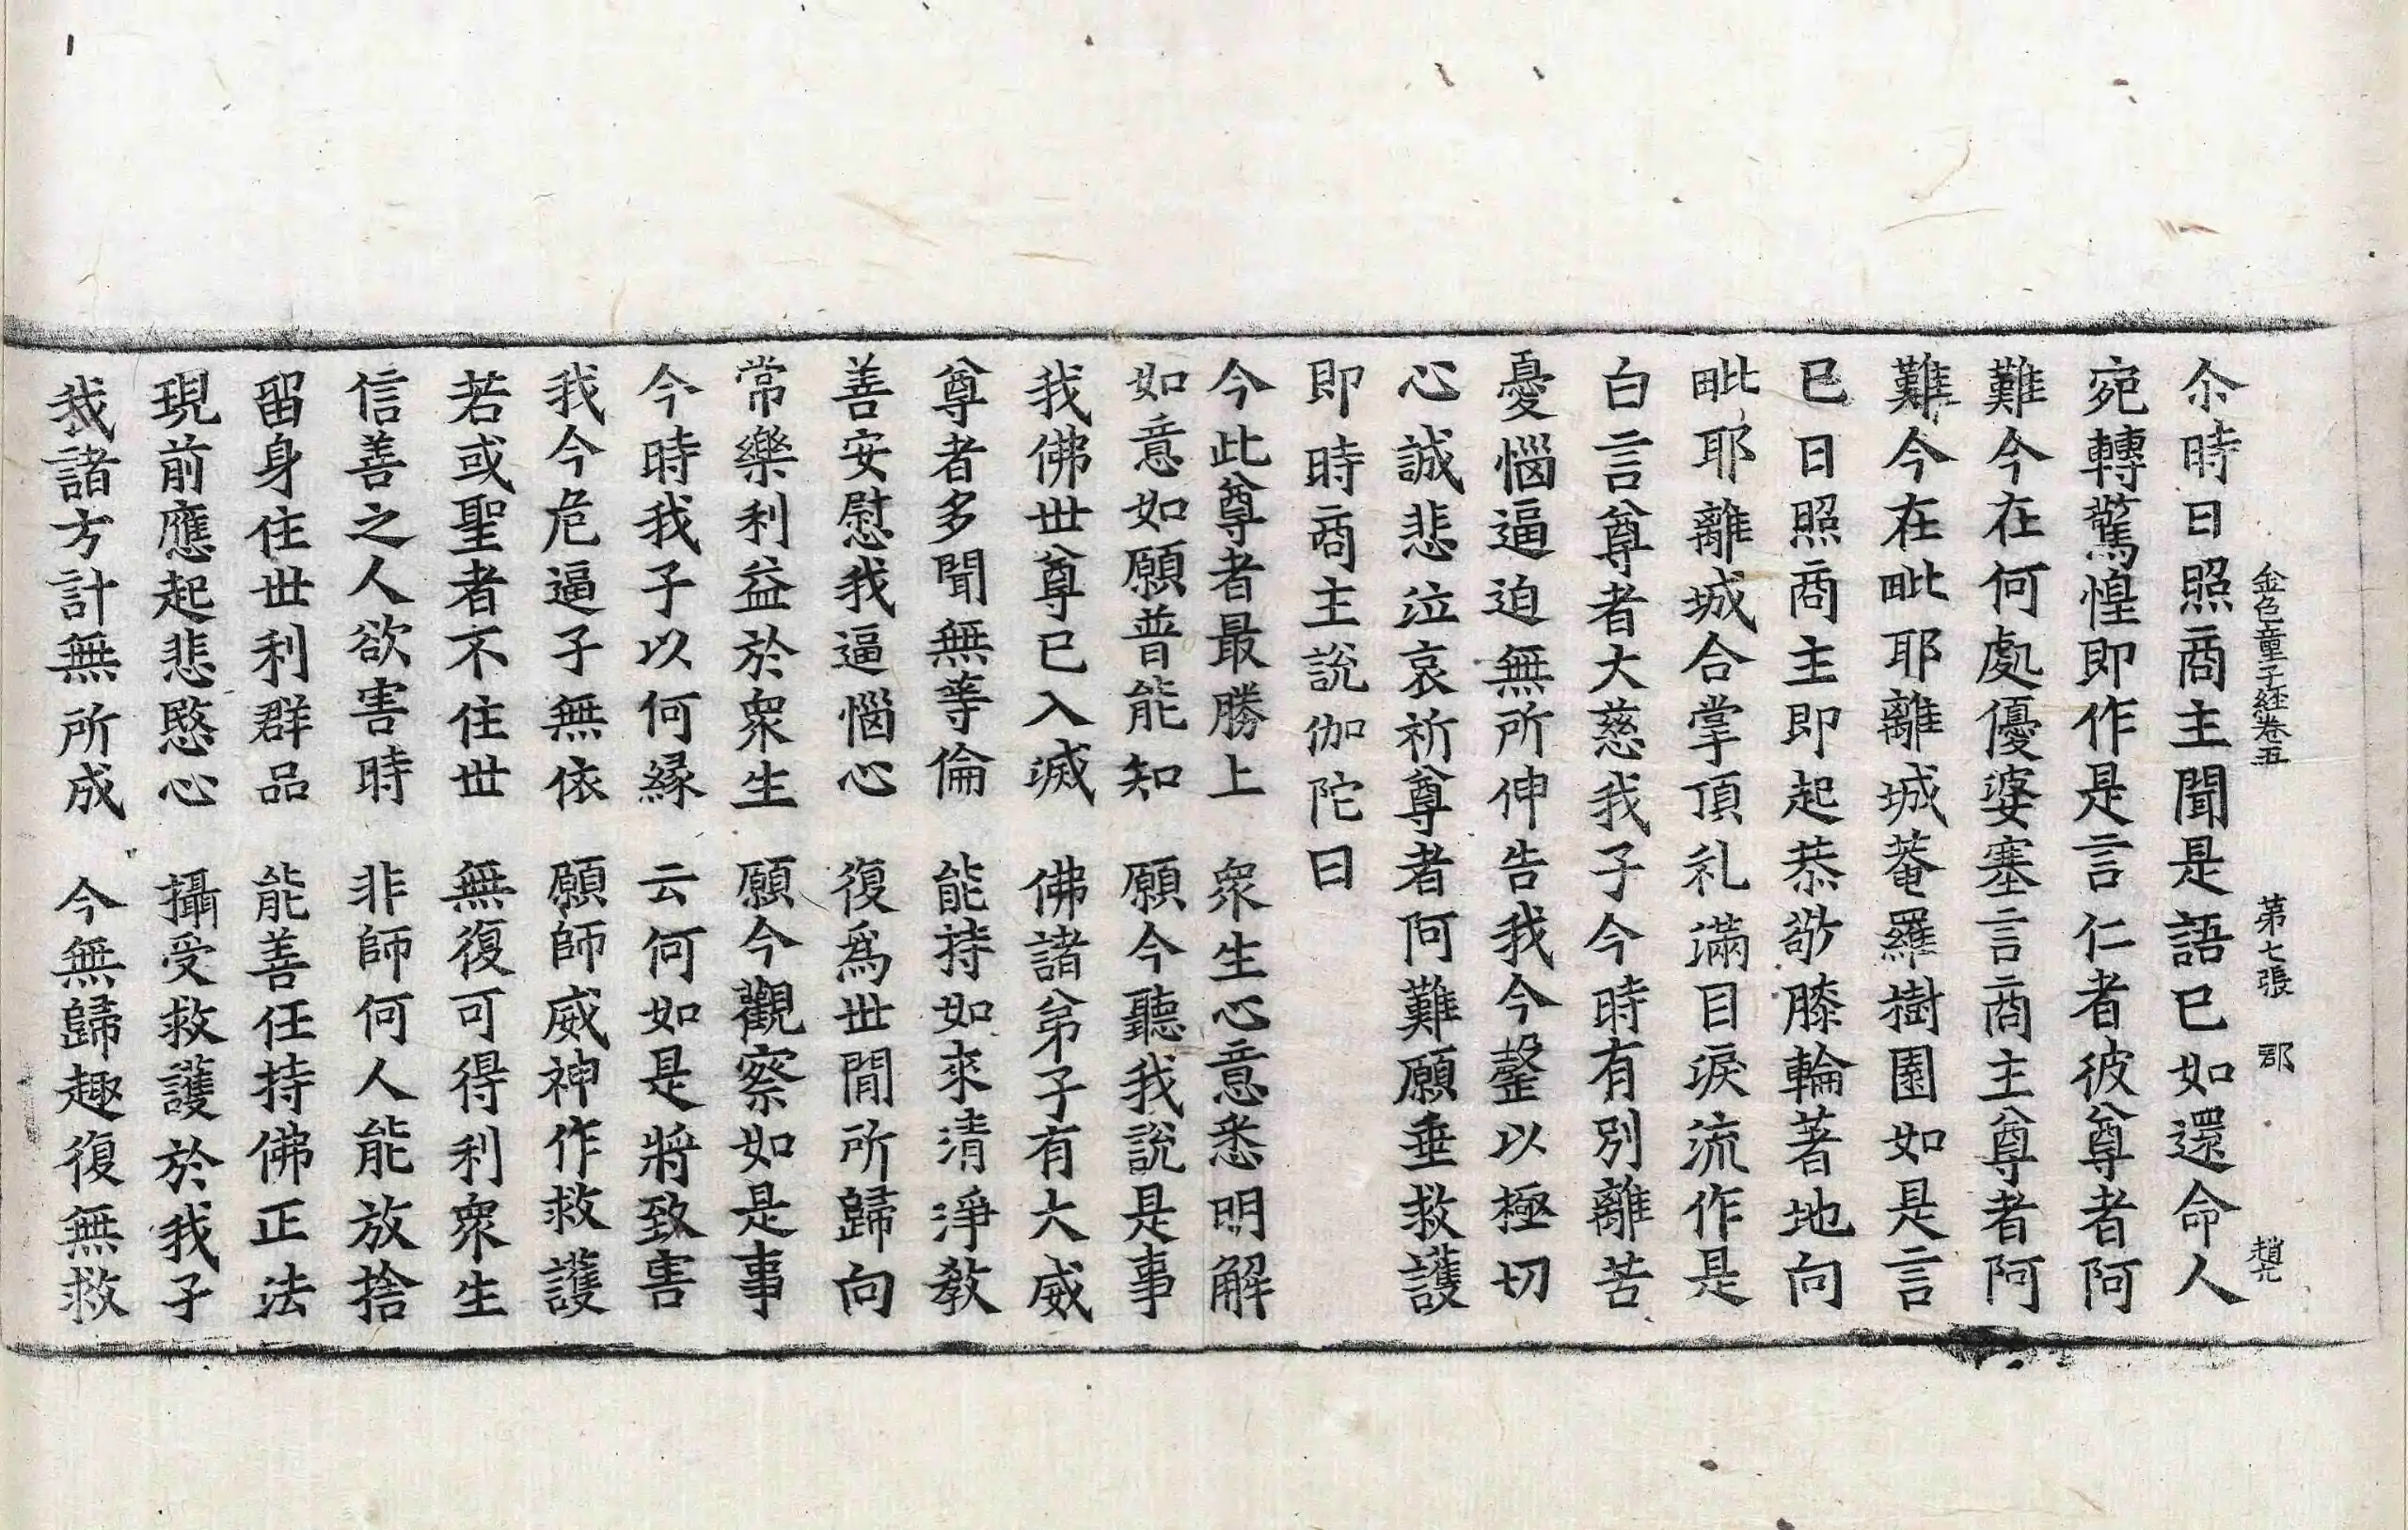 金色童子経卷五 第七張 郡 趙凢
尒時日照商主聞是語已如還命人
宛轉驚惶即作是言仁者彼尊者阿
難今在何處優婆塞言商主尊者阿
難今在毗耶離城菴羅樹園如是言
已日照商主即起恭敬膝輪著地向
毗耶離城合掌頂礼滿目淚流作是
白言尊者大慈我子今時有別離苦
憂惱逼迫無所伸告我今罄以極切
心誠悲泣哀祈尊者阿難願垂救護
即時商主說伽陀曰
今此尊者最勝上 衆生心意悉明解
如意如願普能知 願今聽我說是事
我佛世尊已入滅 佛諸弟子有大威
尊者多聞無等倫 能持如來清淨教
善安慰我逼惱心 復爲世間所歸向
常樂利益於衆生 願今觀察如是事
今時我子以何緣 云何如是將致害
我今危逼子無依 願師威神作救護
若或聖者不住世 無復可得利衆生
信善之人欲害時 非師何人能放捨
留身住世利群品 能善任持佛正法
現前應起悲愍心 攝受救護於我子
我諸方計無所成 今無歸趣復無救